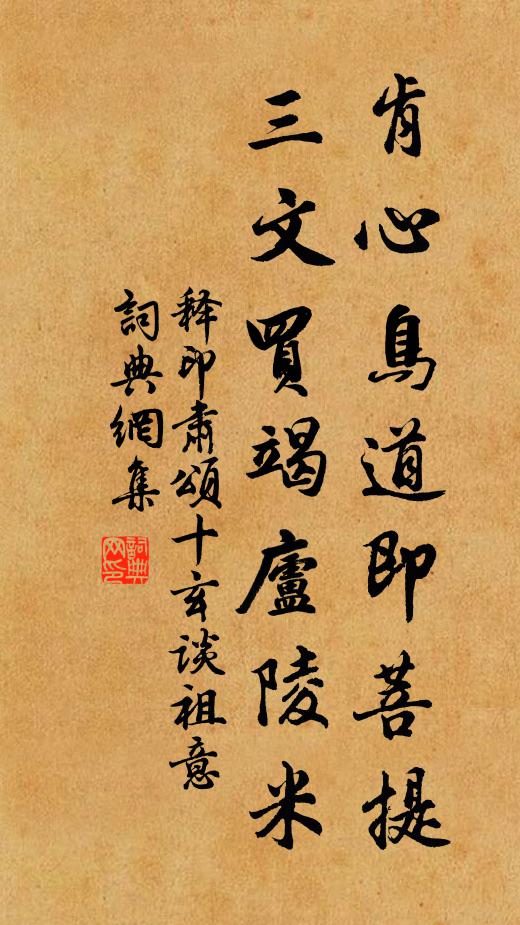 肯心鳥道即菩提
三文買竭廬陵米
释印肅頌十玄谈祖意
詞典網集
詞典網印